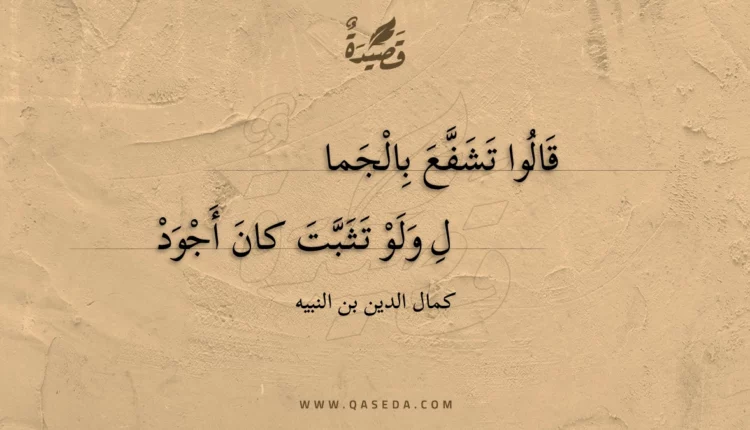 قَصِيْدَةٌ
قَالُوا تَشَفَّعَ بِالْجَما
لِ وَلَوْ تَثَبَّتَ كانَ أَجْوَدْ
كمال الدين بن النبيه
WWW.QASEDA.COM